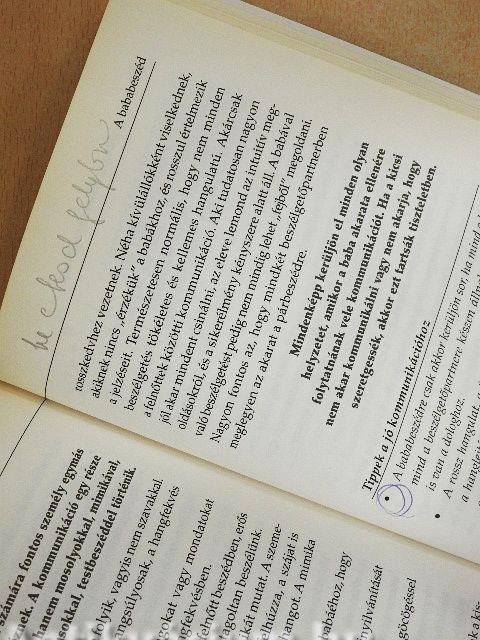 számára fontos személy egymás
nek. A kommunikáció egy része
hanem mosolyokkal, mimikával,
usokkal, testbeszéddel történik.
lyik, vagyis nem szavakkal
ngsúlyosak, a hangfekvés
gokat vagy mondatokat
gfekvésben.
felnőtt beszédben, erős
agoltan beszélünk.
ikát mutat. A szeme-
húzza, a száját is
angot. A mimika
babáéhoz, hogy
nyilvánítását
öcögéssel
A bababeszéd
rosszkedvhez vezetnek. Néha kívülállókként viselkednek,
akiknek nincs „érzékük” a babákhoz, és rosszul értelmezik
a jelzéseit. Természetesen normális, hogy nem minden
beszélgetés tökéletes és kellemes hangulatú. Akárcsak
a felnőttek közötti kommunikáció. Aki tudatosan nagyon
jól akar mindent csinálni, az eleve lemond az intuitív meg-
oldásokról, és a sikerélmény kényszere alatt áll. A babával
való beszélgetést pedig nem mindig lehet „fejből” megoldani.
Nagyon fontos az, hogy mindkét beszélgetőpartnerben
meglegyen az akarat a párbeszédre.
Mindenképp kerüljön el minden olyan
helyzetet, amikor a baba akarata ellenére
folytatnának vele kommunikációt. Ha a kicsi
nem akar kommunikálni vagy nem akarja, hogy
szeretgessék, akkor ezt tartsák tiszteletben.
Tippek a jó kommunikációhoz
• A bababeszédre csak akkor kerüljön sor, ha mind a
mind a beszélgetőpartnere készen áll
is van a dologhoz.
• A rossz hangulat, a
a hangfek